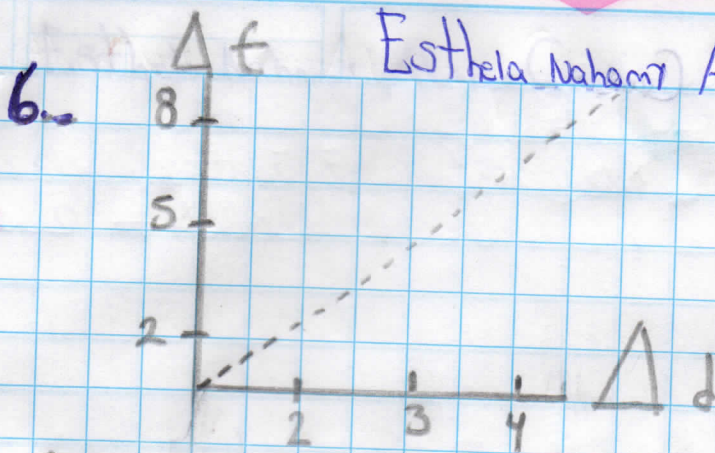 Δt
Esthela Nahomy A
6.-
8
5
2
2 3 4
Δ d